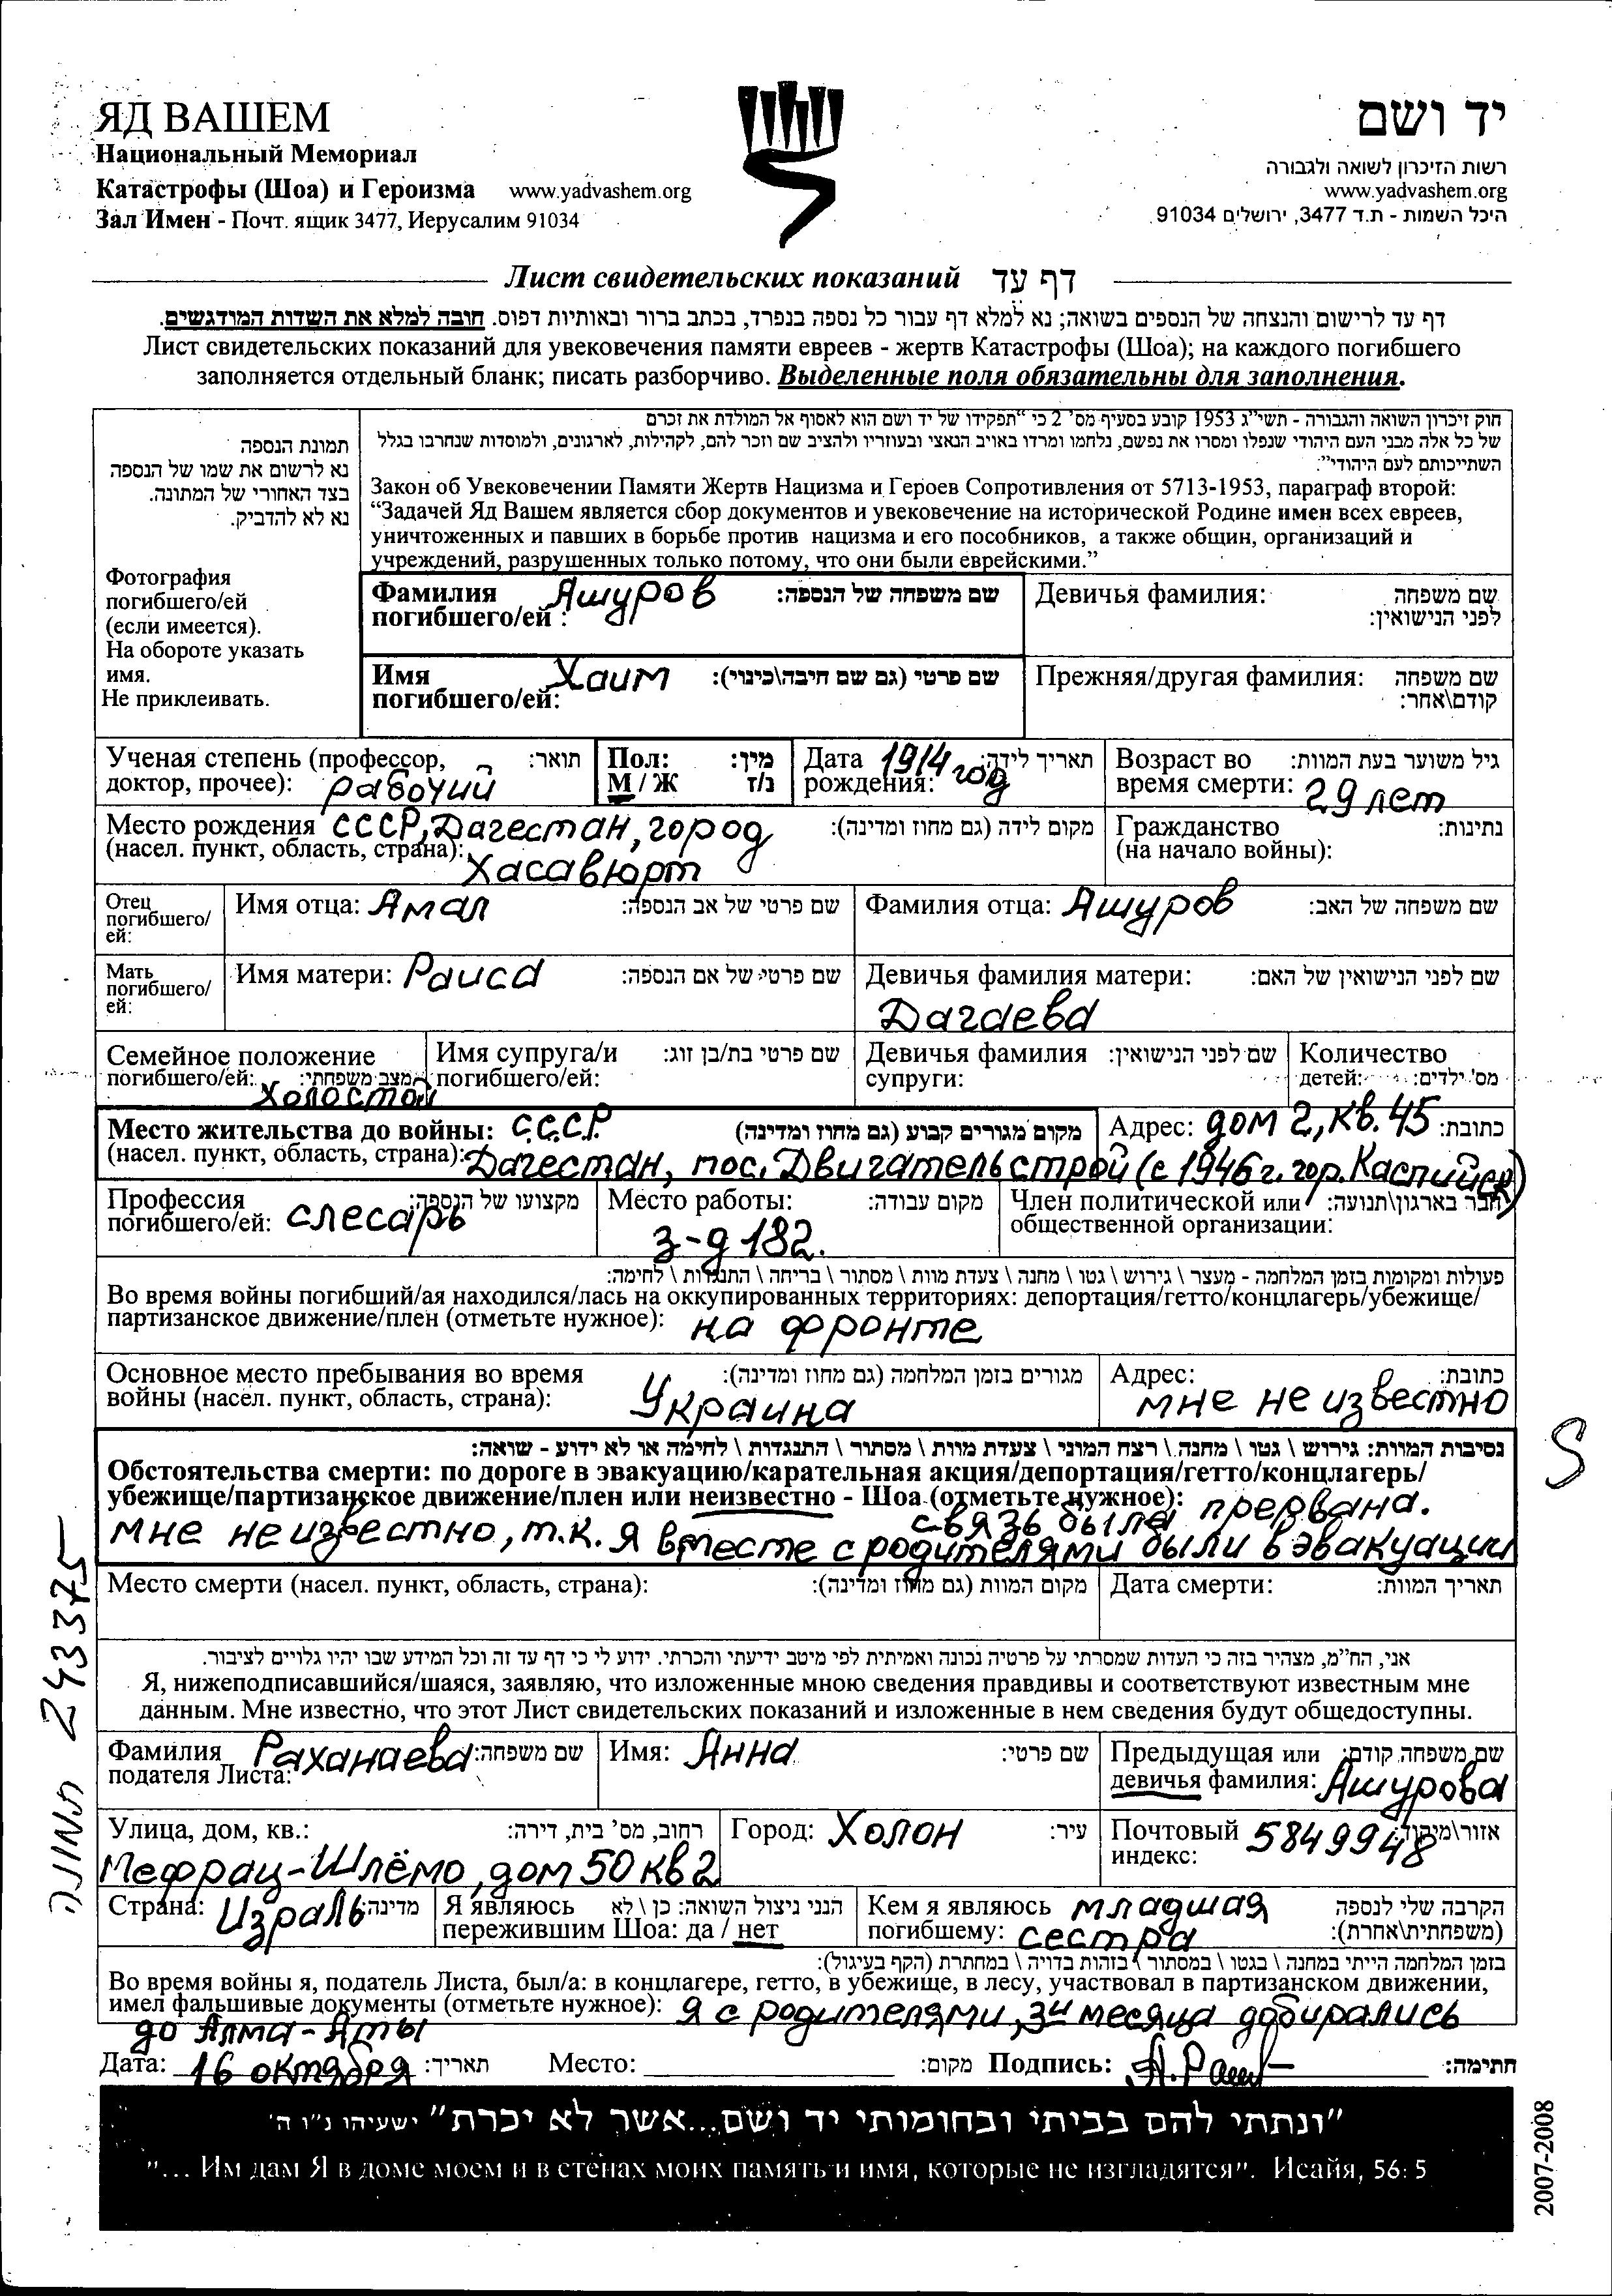 ЯД ВАШЕМ
Национальный Мемориал
Катастрофы (Шоа) и Героизма www.yadvashem.org
Зал Имен - Почт. ящик 3477, Иерусалим 91034
יד ושם
רשות הזיכרון לשואה ולגבורה
www.yadvashem.org
היכל השמות - ת.ד 3477, ירושלים 91034
Лист свидетельских показаний דף עד
דף עד לרישום והנצחה של הנספים בשואה; נא למלא דף עבור כל נספה בנפרד, בכתב ברור ובאותיות דפוס. חובה למלא את השדות המודגשים.
Лист свидетельских показаний для увековечения памяти евреев - жертв Катастрофы (Шоа); на каждого погибшего
заполняется отдельный бланк; писать разборчиво. Выделенные поля обязательны для заполнения.
תמונת הנספה
נא לרשום את שמו של הנספה
בצד האחורי של המתונה.
נא לא להדביק.
Фотография
погибшего/ей
(если имеется).
На обороте указать
имя.
Не приклеивать.
חוק זיכרון השואה והגבורה - תשי"ג 1953 קובע בסעיף מס' 2 כי "תפקידו של יד ושם הוא לאסוף אל המולדת את זכרם
של כל אלה מבני העם היהודי שנפלו ומסרו את נפשם, נלחמו ומרדו באויב הנאצי ובעוזריו ולהציב שם וזכר להם, לקהילות, לארגונים, ולמוסדות שנחרבו בגלל
השתייכותם לעם היהודי".
Закон об Увековечении Памяти Жертв Нацизма и Героев Сопротивления от 5713-1953, параграф второй:
“Задачей Яд Вашем является сбор документов и увековечение на исторической Родине имен всех евреев,
уничтоженных и павших в борьбе против нацизма и его пособников, а также общин, организаций и
учреждений, разрушенных только потому, что они были еврейскими.”
Фамилия Ашуров שם משפחה של הנספה: Девичья фамилия: שם משפחה
погибшего/ей : לפני הנישואין:
Имя Хаим שם פרטי (גם שם חיבה\כינוי): Прежняя/другая фамилия: שם משפחה
погибшего/ей: קודם\אחר:
Ученая степень (профессор, תואר: Пол: מין: Дата 1914 תאריך לידה: Возраст во גיל משוער בעת המוות:
доктор, прочее): рабочий М / Ж נ/ז рождения: год время смерти: 29 лет
Место рождения СССР, Дагестан, город מקום לידה (גם מחוז ומדינה): Гражданство נתינות:
(насел. пункт, область, страна): Хасавюрт (на начало войны):
Отец
погибшего/
ей:
Имя отца: Амал שם פרטי של אב הנספה: Фамилия отца: Ашуров שם משפחה של האב:
Мать
погибшего/
ей:
Имя матери: Раиса שם פרטי של אם הנספה: Девичья фамилия матери: שם לפני הנישואין של האם:
Дагаева
Семейное положение Имя супруга/и שם פרטי בת/בן זוג: Девичья фамилия שם לפני הנישואין: Количество
погибшего/ей: מצב משפחתי: погибшего/ей: супруги: детей: מס' ילדים:
Холостой
Место жительства до войны: С.С.С.Р. מקום מגורים קבוע (גם מחוז ומדינה) Адрес: дом 2, кв. 45 כתובת:
(насел. пункт, область, страна): Дагестан, пос. Двигательстрой (с 1946 г. гор. Каспийск)
Профессия מקצועו של הנספה: Место работы: מקום עבודה: Член политической или חבר בארגון\תנועה:
погибшего/ей: слесарь з-д 182. общественной организации:
פעולות ומקומות בזמן המלחמה - מעצר \ גירוש \ גטו \ מחנה \ צעדת מוות \ מסתור \ בריחה \ התנגדות \ לחימה:
Во время войны погибший/ая находился/лась на оккупированных территориях: депортация/гетто/концлагерь/убежище/
партизанское движение/плен (отметьте нужное): на фронте
Основное место пребывания во время מגורים בזמן המלחמה (גם מחוז ומדינה): Адрес: כתובת:
войны (насел. пункт, область, страна): Украина мне не известно
נסיבות המוות: גירוש \ גטו \ מחנה \ רצח המוני \ צעדת מוות \ מסתור \ התנגדות \ לחימה או לא ידוע - שואה:
Обстоятельства смерти: по дороге в эвакуацию/карательная акция/депортация/гетто/концлагерь/
убежище/партизанское движение/плен или неизвестно - Шоа (отметьте нужное): прервана.
связь была
мне не известно, т.к. я вместе с родителями были в эвакуации
S
Место смерти (насел. пункт, область, страна): מקום המוות (גם מחוז ומדינה): Дата смерти: תאריך המוות:
אני, הח"מ, מצהיר בזה כי העדות שמסרתי על פרטיה נכונה ואמיתית לפי מיטב ידיעתי והכרתי. ידוע לי כי דף עד זה וכל המידע שבו יהיו גלויים לציבור.
Я, нижеподписавшийся/шаяся, заявляю, что изложенные мною сведения правдивы и соответствуют известным мне
данным. Мне известно, что этот Лист свидетельских показаний и изложенные в нем сведения будут общедоступны.
Фамилия Раханаева שם משפחה: Имя: Анна שם פרטי: Предыдущая или שם משפחה קודם:
подателя Листа: девичья фамилия: Ашурова
Улица, дом, кв.: רחוב, מס' בית, דירה: Город: Холон עיר: Почтовый 5849948 אזור\מיקוד:
индекс:
Мефрац-Шлёмо, дом 50 кв 2
Страна: Израль מדינה: Я являюсь הנני ניצול השואה: כן \ לא Кем я являюсь младшая הקרבה שלי לנספה
пережившим Шоа: да / нет погибшему: сестра (משפחתית\אחרת):
בזמן המלחמה הייתי במחנה \ בגטו \ במסתור \ בזהות בדויה \ במחתרת (הקף בעיגול):
Во время войны я, податель Листа, был/а: в концлагере, гетто, в убежище, в лесу, участвовал в партизанском движении,
имел фальшивые документы (отметьте нужное): я с родителями, 3и месяца добирались
до Алма-Аты
Дата: 16 октября תאריך: Место: מקום: Подпись: חתימה:
"ונתתי להם בביתי ובחומותי יד ושם...אשר לא יכרת" ישעיהו נ"ו ה'
"... Им дам Я в доме моем и в стенах моих память и имя, которые не изгладятся". Исайя, 56: 5
תמונה 243375
2007-2008